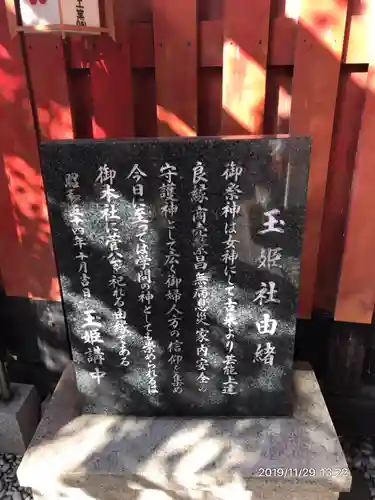 玉姫社由緒
御祭神は女神にして古来より芸能上達
良縁商売繁昌無病息災家内安全の
守護神として広く御婦人方の信仰を集め
今日に至っては学問の神としても崇められるは
御本社に菅公を祀れる由縁である
昭和五十四年十月吉日 玉姫講中
2019/11/29 13:22